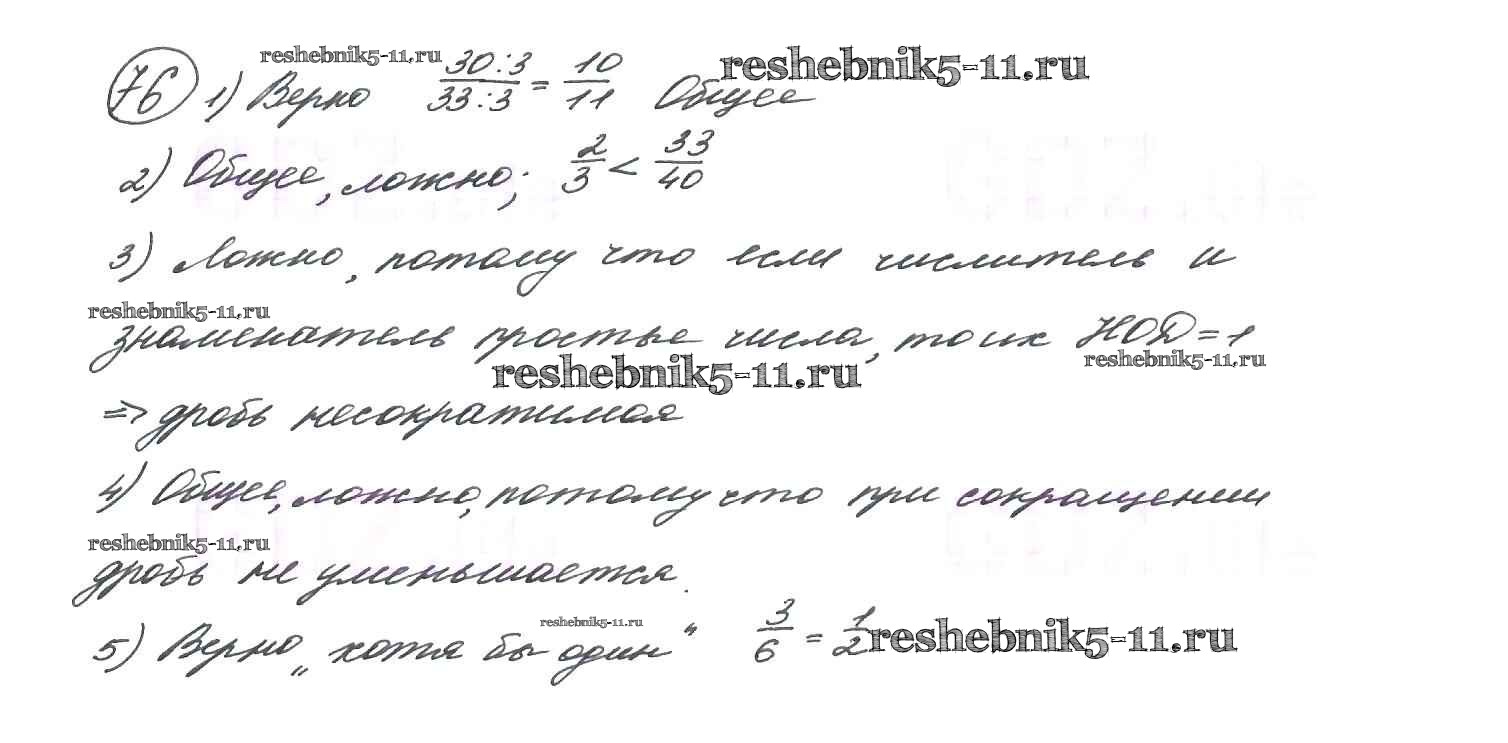 reshebnik5-11.ru reshebnik5-11.ru
76 1) Верно 30:3/33:3 = 10/11 Общее
2) Общее, ложно; 2/3 < 33/40
3) Ложно, потому что если числитель и
reshebnik5-11.ru
знаменатель простые числа, то их НОД=1
reshebnik5-11.ru reshebnik5-11.ru
=> дробь несократимая
4) Общее, ложно, потому что при сокращении
reshebnik5-11.ru
дробь не уменьшается.
5) Верно „хотя бы один" 3/6 = 1/2
reshebnik5-11.ru reshebnik5-11.ru